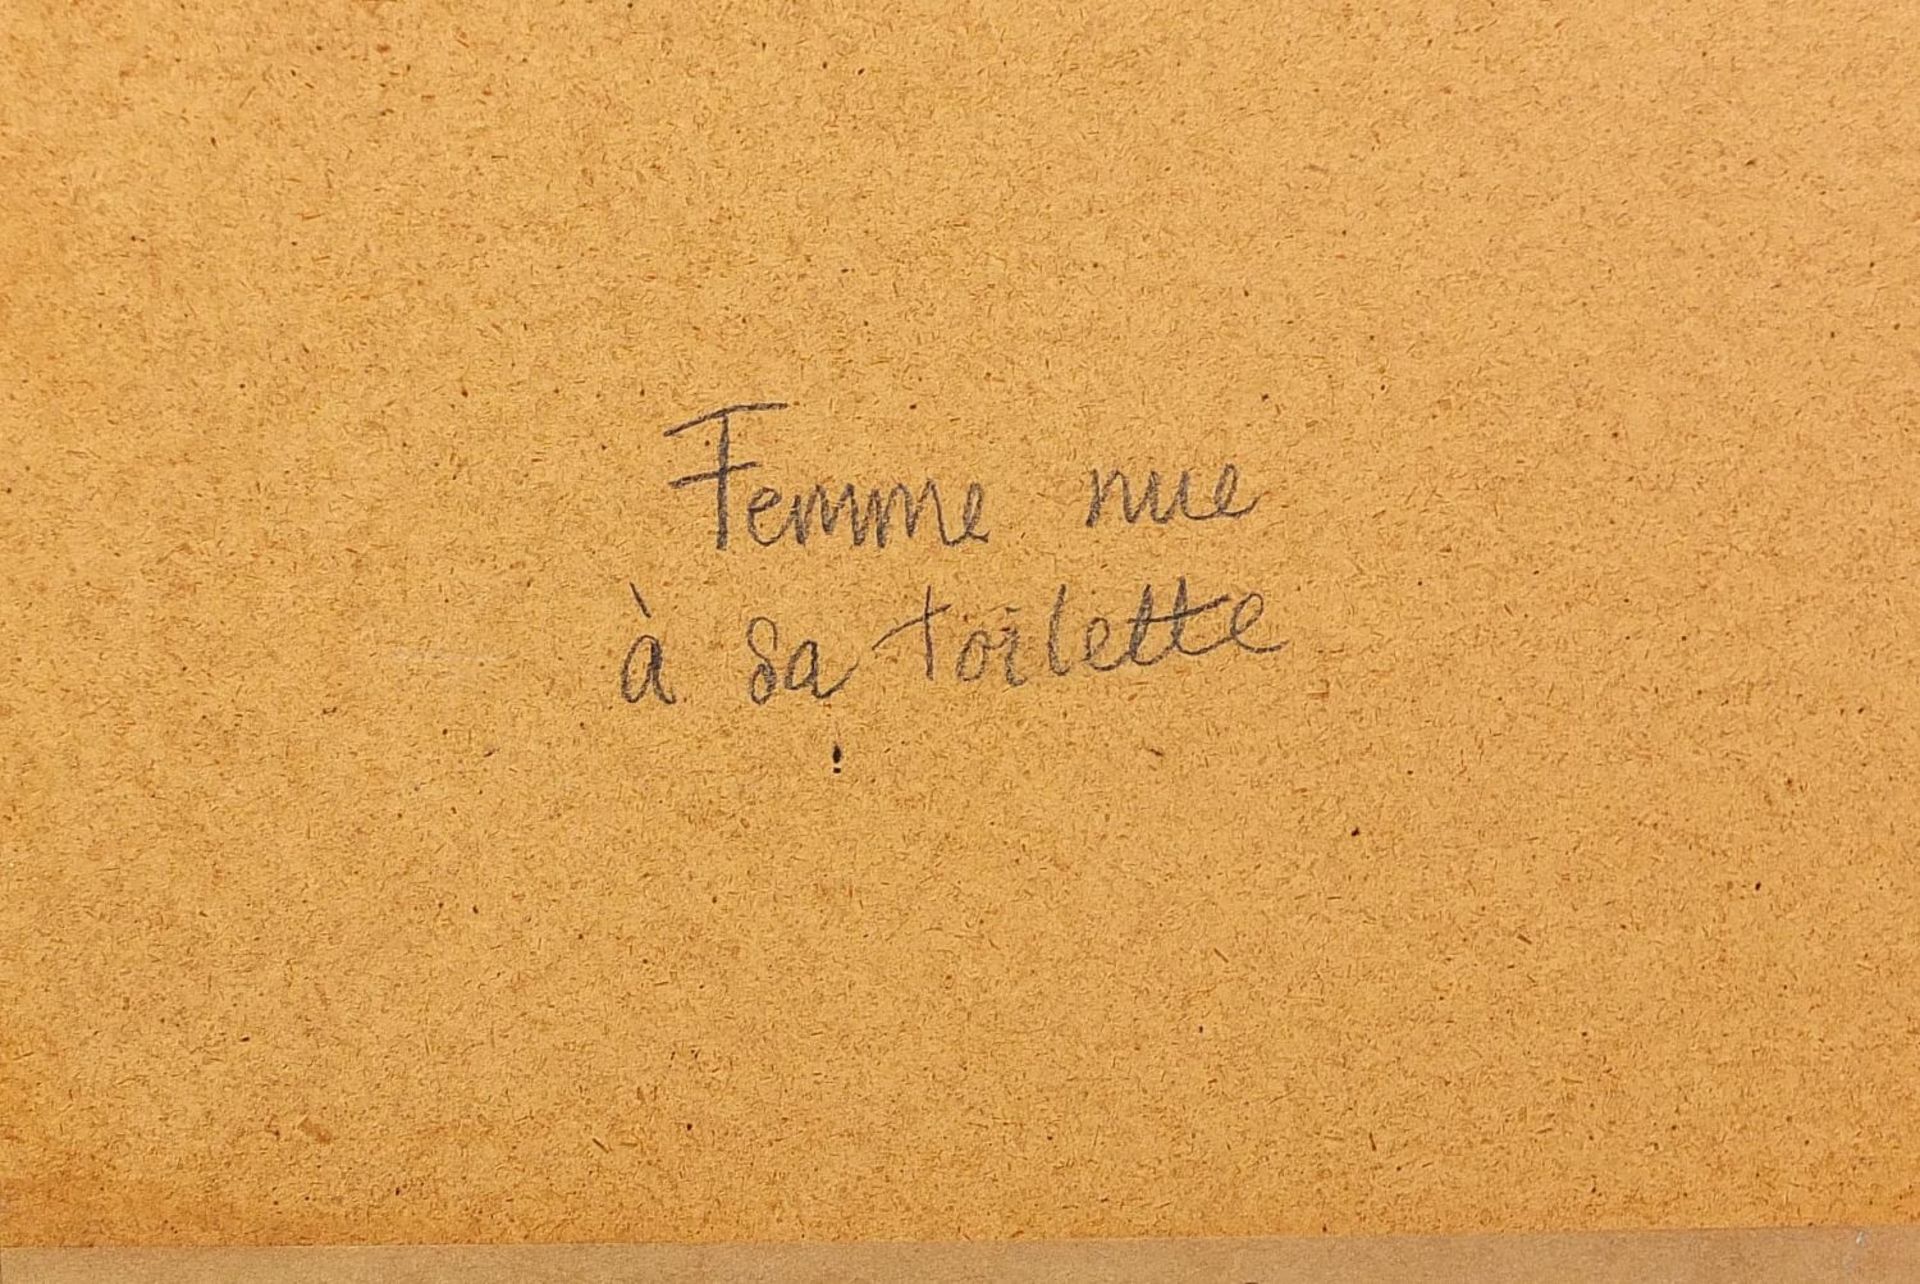 Femme nue
à sa toilette